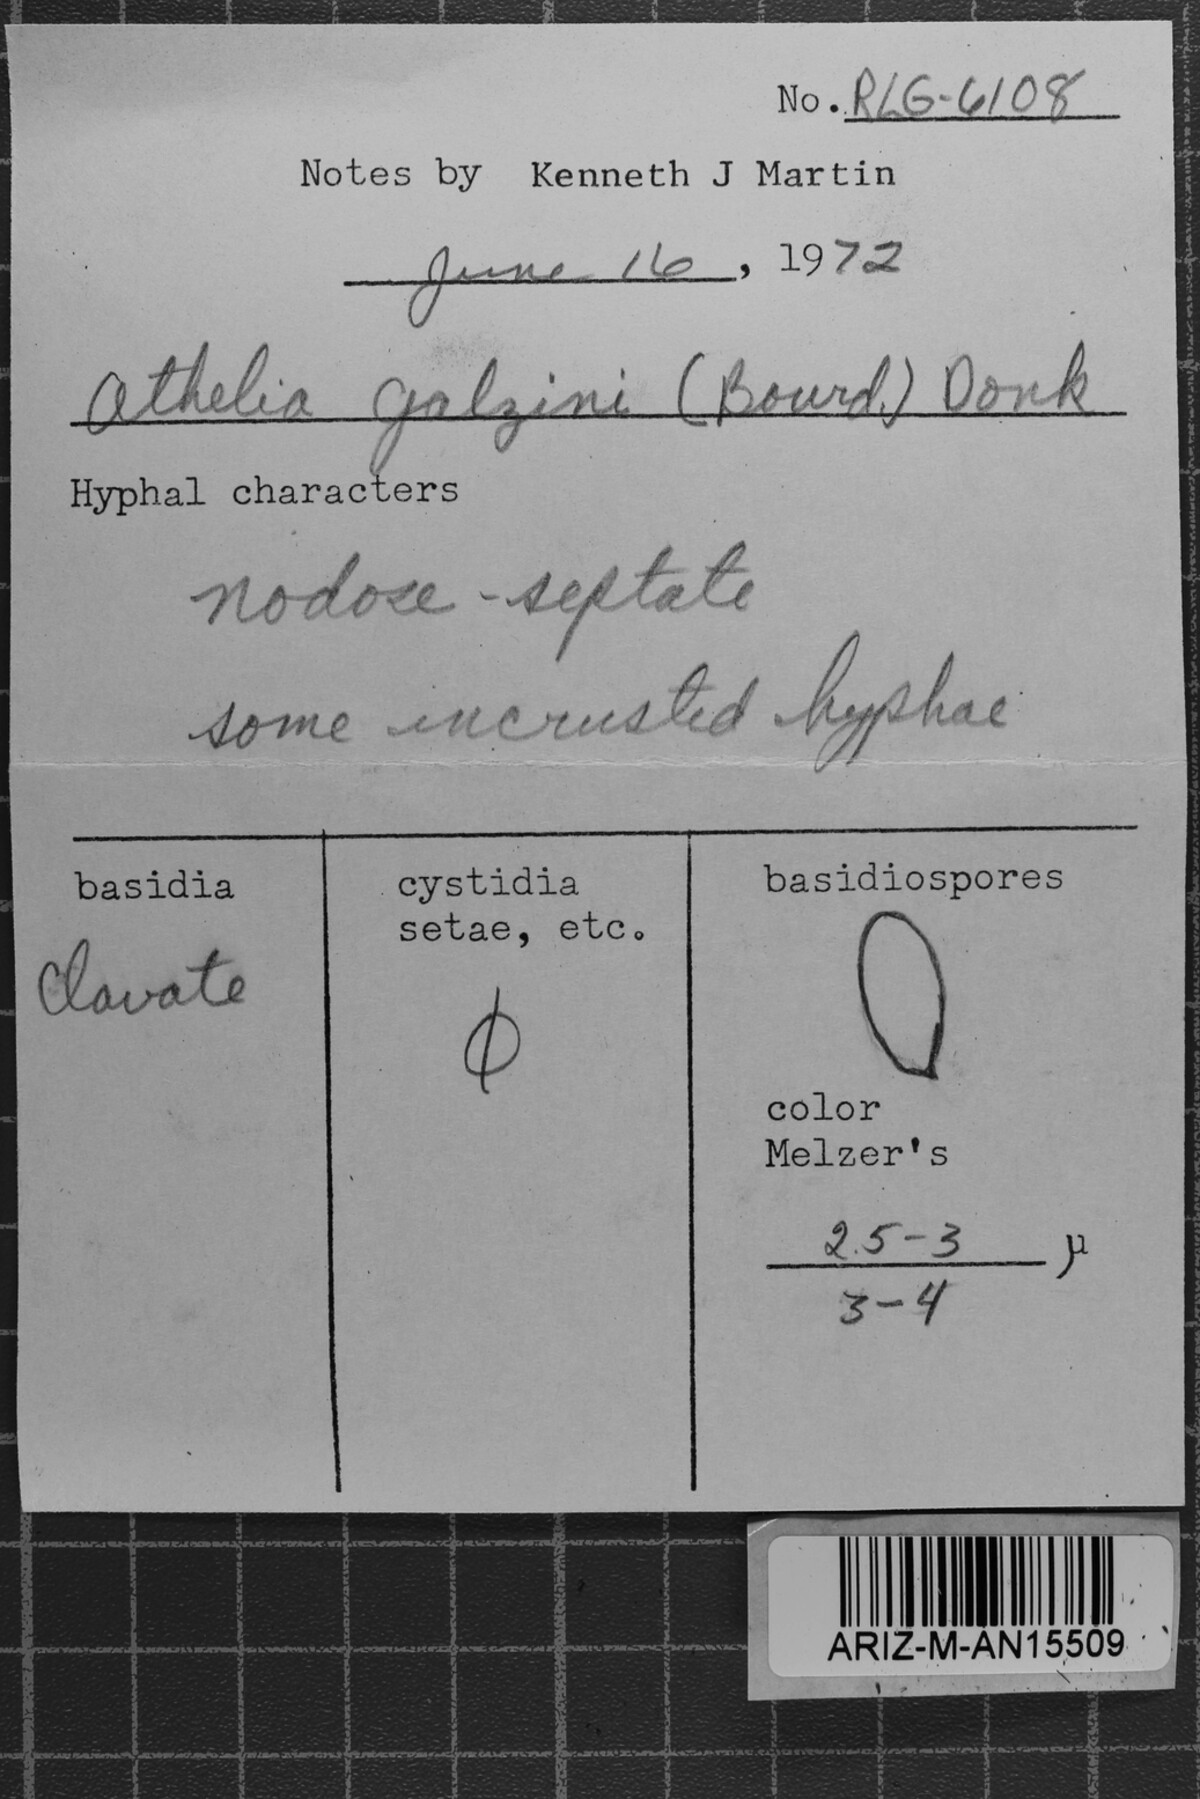 No. RLG-6108
Notes by Kenneth J Martin
June 16, 1972
Athelia galzini (Bourd.) Donk
Hyphal characters
nodose-septate
some incrusted hyphae
basidia
clavate
cystidia
setae, etc.
ϕ
basidiospores
color
Melzer's
2.5-3 µ
3-4
ARIZ-M-AN15509